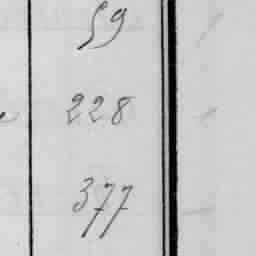 59
228
377